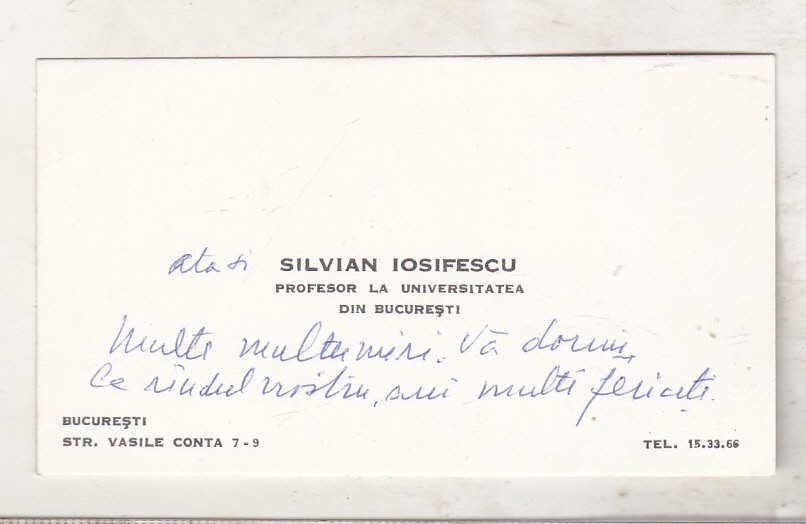 Ata si SILVIAN IOSIFESCU
PROFESOR LA UNIVERSITATEA
DIN BUCUREŞTI
Multe multumiri. Vă dorim,
la rîndul vostru, ani multi fericiţi.
BUCUREŞTI
STR. VASILE CONTA 7-9
TEL. 15.33.66